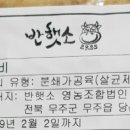 반햇소
비
의 유형: 분쇄가공육(살균제
매지: 반햇소 영농조합법인
전북 무주군 무주읍 당
9년 2월 2일까지